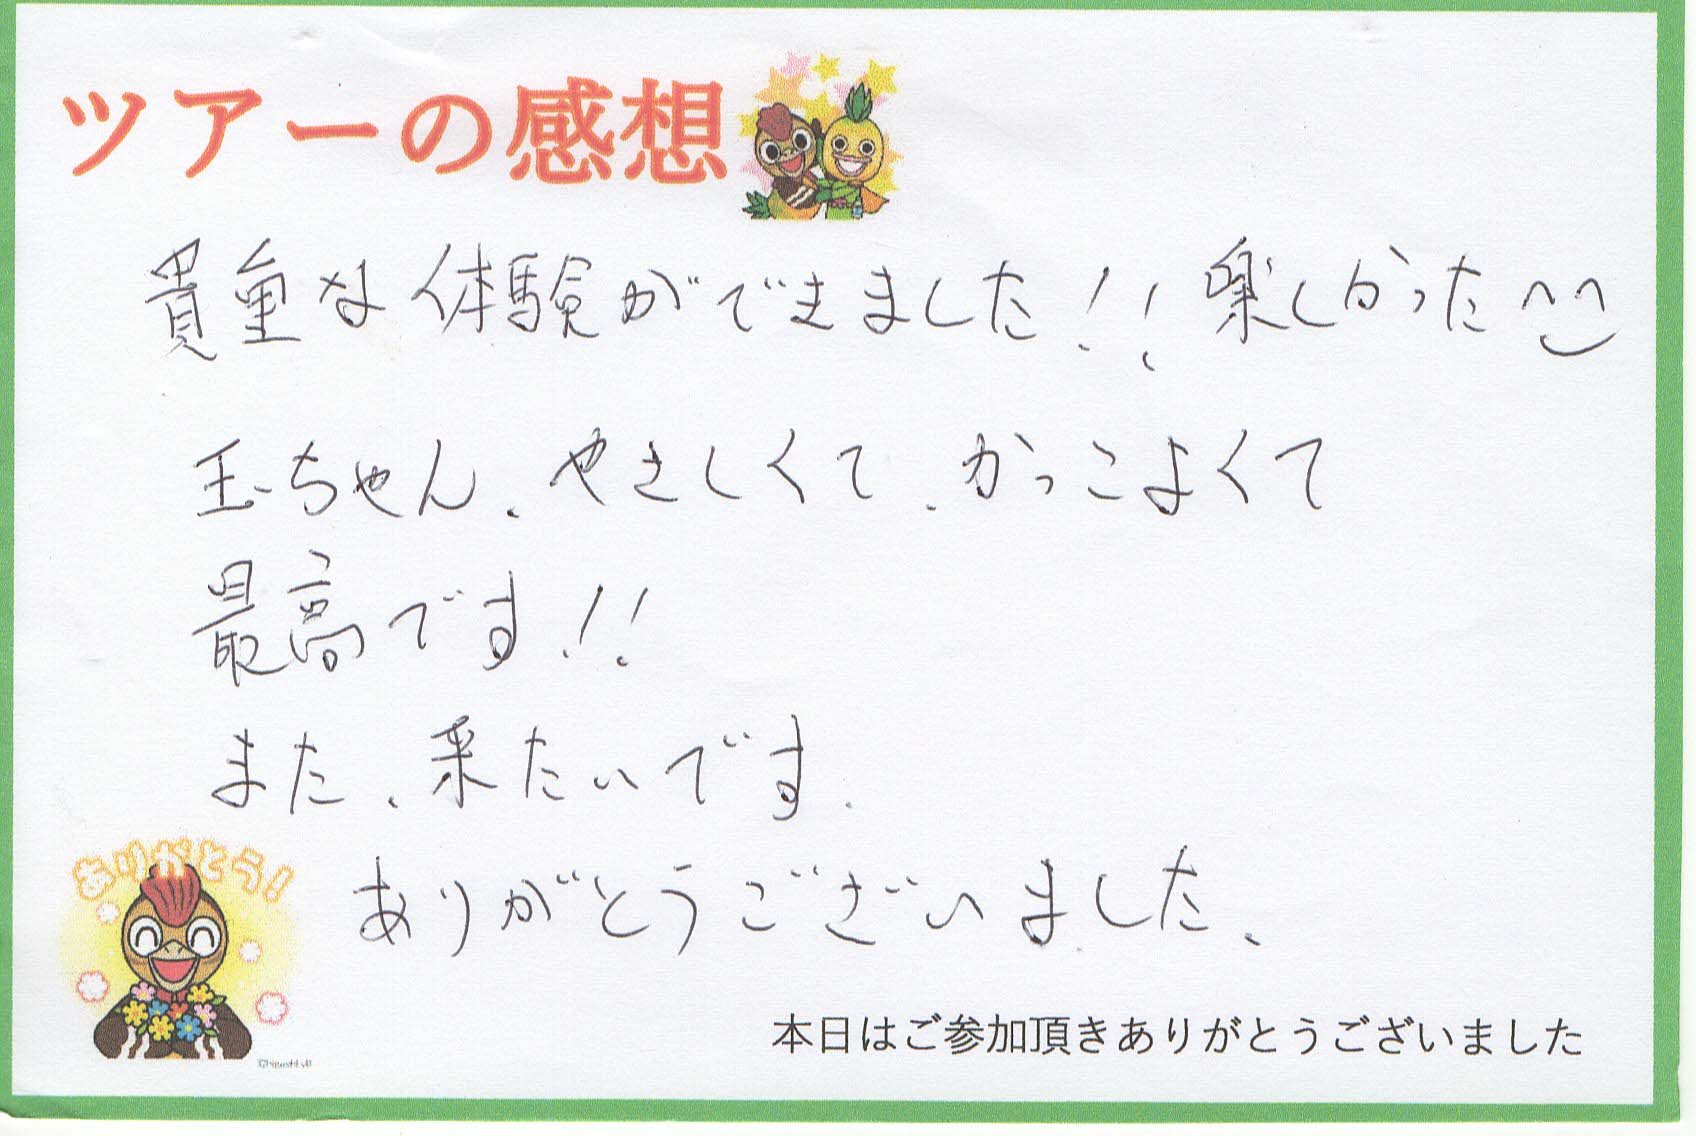 ツアーの感想
貴重な体験ができました!! 楽しかった^^
玉ちゃん、やさしくて、かっこよくて
最高です!!
また、来たいです。
ありがとう!
ありがとうございました。
本日はご参加頂きありがとうございました